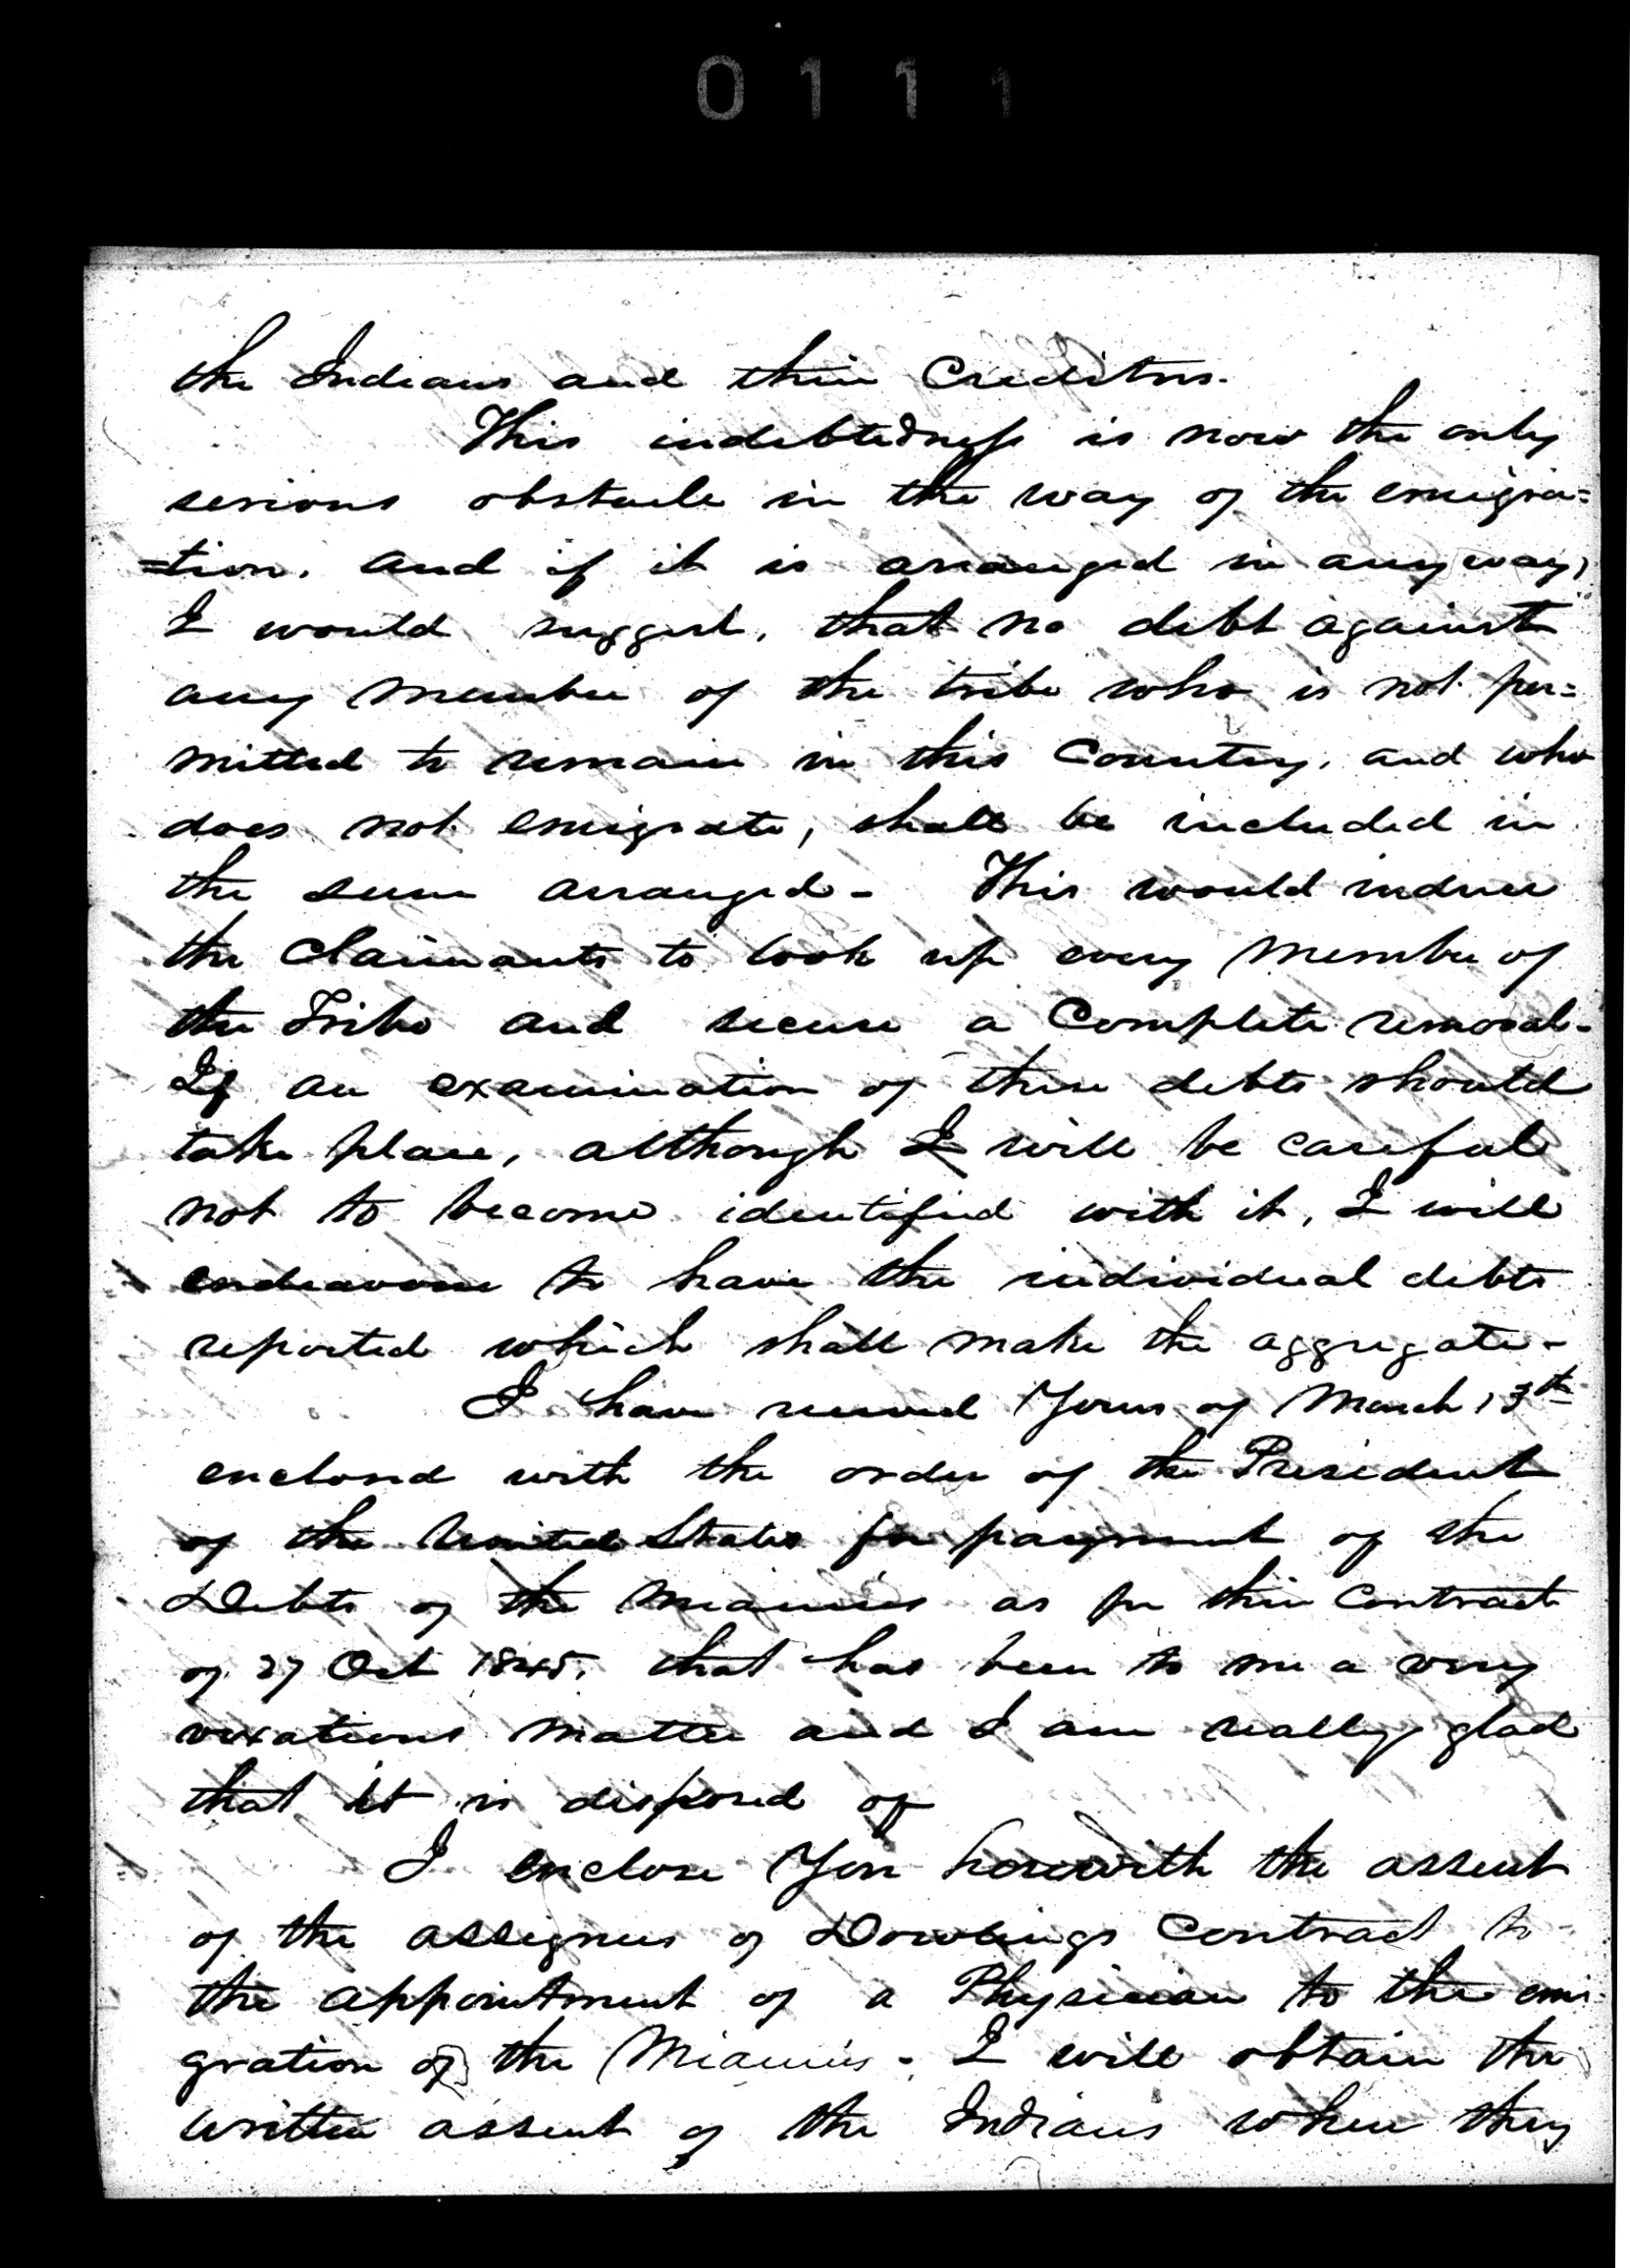 0111
the Indians and their Creditors.
This indebtedness is now the only
serious obstacle in the way of the emigra=
=tion. and if it is arranged in any way,
I would suggest, that no debt against
any member of the tribe who is not per=
mitted to remain in this Country, and who
does not emigrate, shall be included in
the sum arranged - This would induce
the Claimants to look up every member of
the Tribe and secure a Complete removal -
If an examination of these debts should
take place, although I will be careful
not to become identified with it, I will
endeavour to have the individual debts
reported which shall make the aggregate -
I have received Yours of March 13th
enclosed with the order of the President
of the United States for payment of the
Debts of the Miamies as per their Contract
of 27 Oct 1845. that has been to me a very
vexatious matter and I am really glad
that it is disposed of
I enclose You herewith the assent
of the assignees of Dowlings Contract to
the appointment of a Physician to the emi-
gration of the Miamies. I will obtain the
written assent of the Indians when they